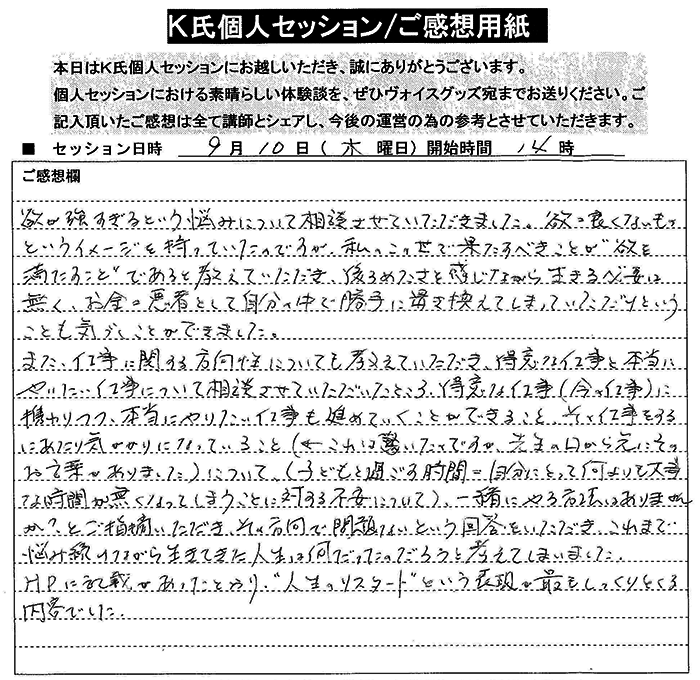 K氏個人セッション/ご感想用紙
本日はK氏個人セッションにお越しいただき、誠にありがとうございます。
個人セッションにおける素晴らしい体験談を、ぜひヴォイスグッズ宛までお送りください。ご
記入頂いたご感想は全て講師とシェアし、今後の運営の為の参考とさせていただきます。
■ セッション日時 9月10日(木曜日)開始時間 14時
ご感想欄
欲が強すぎるという悩みについて相談させていただきました。欲=良くないもの
というイメージを持っていたのですが、私のこの世で果たすべきことが“欲を
満たすこと”であると教えていただき、後ろめたさを感じながら生きる必要は
無く、お金=悪者として自分の中で勝手に置き換えてしまっていただけという
ことも気づくことができました。
また、仕事に関する方向性についても教えていただき、得意な仕事と本当に
やりたい仕事について相談させていただいたところ、得意な仕事(今の仕事)に
携わりつつ、本当にやりたい仕事も進めていくことができること、その仕事をする
にあたり気がかりになっていること(←これは驚いたのですが、先生の口から先にその
お言葉がありました)について、(子どもと過ごす時間=自分にとって何よりも大事
な時間が無くなってしまうことに対する不安について)、一緒にやる方法はありません
か?とご指摘いただき、その方向で問題ないという回答をいただき、これまで
悩み続けながら生きてきた人生は何だったのだろうと考えてしまいました。
HPに記載があったとおり、“人生のリスタート”という表現が最もしっくりとくる
内容でした。